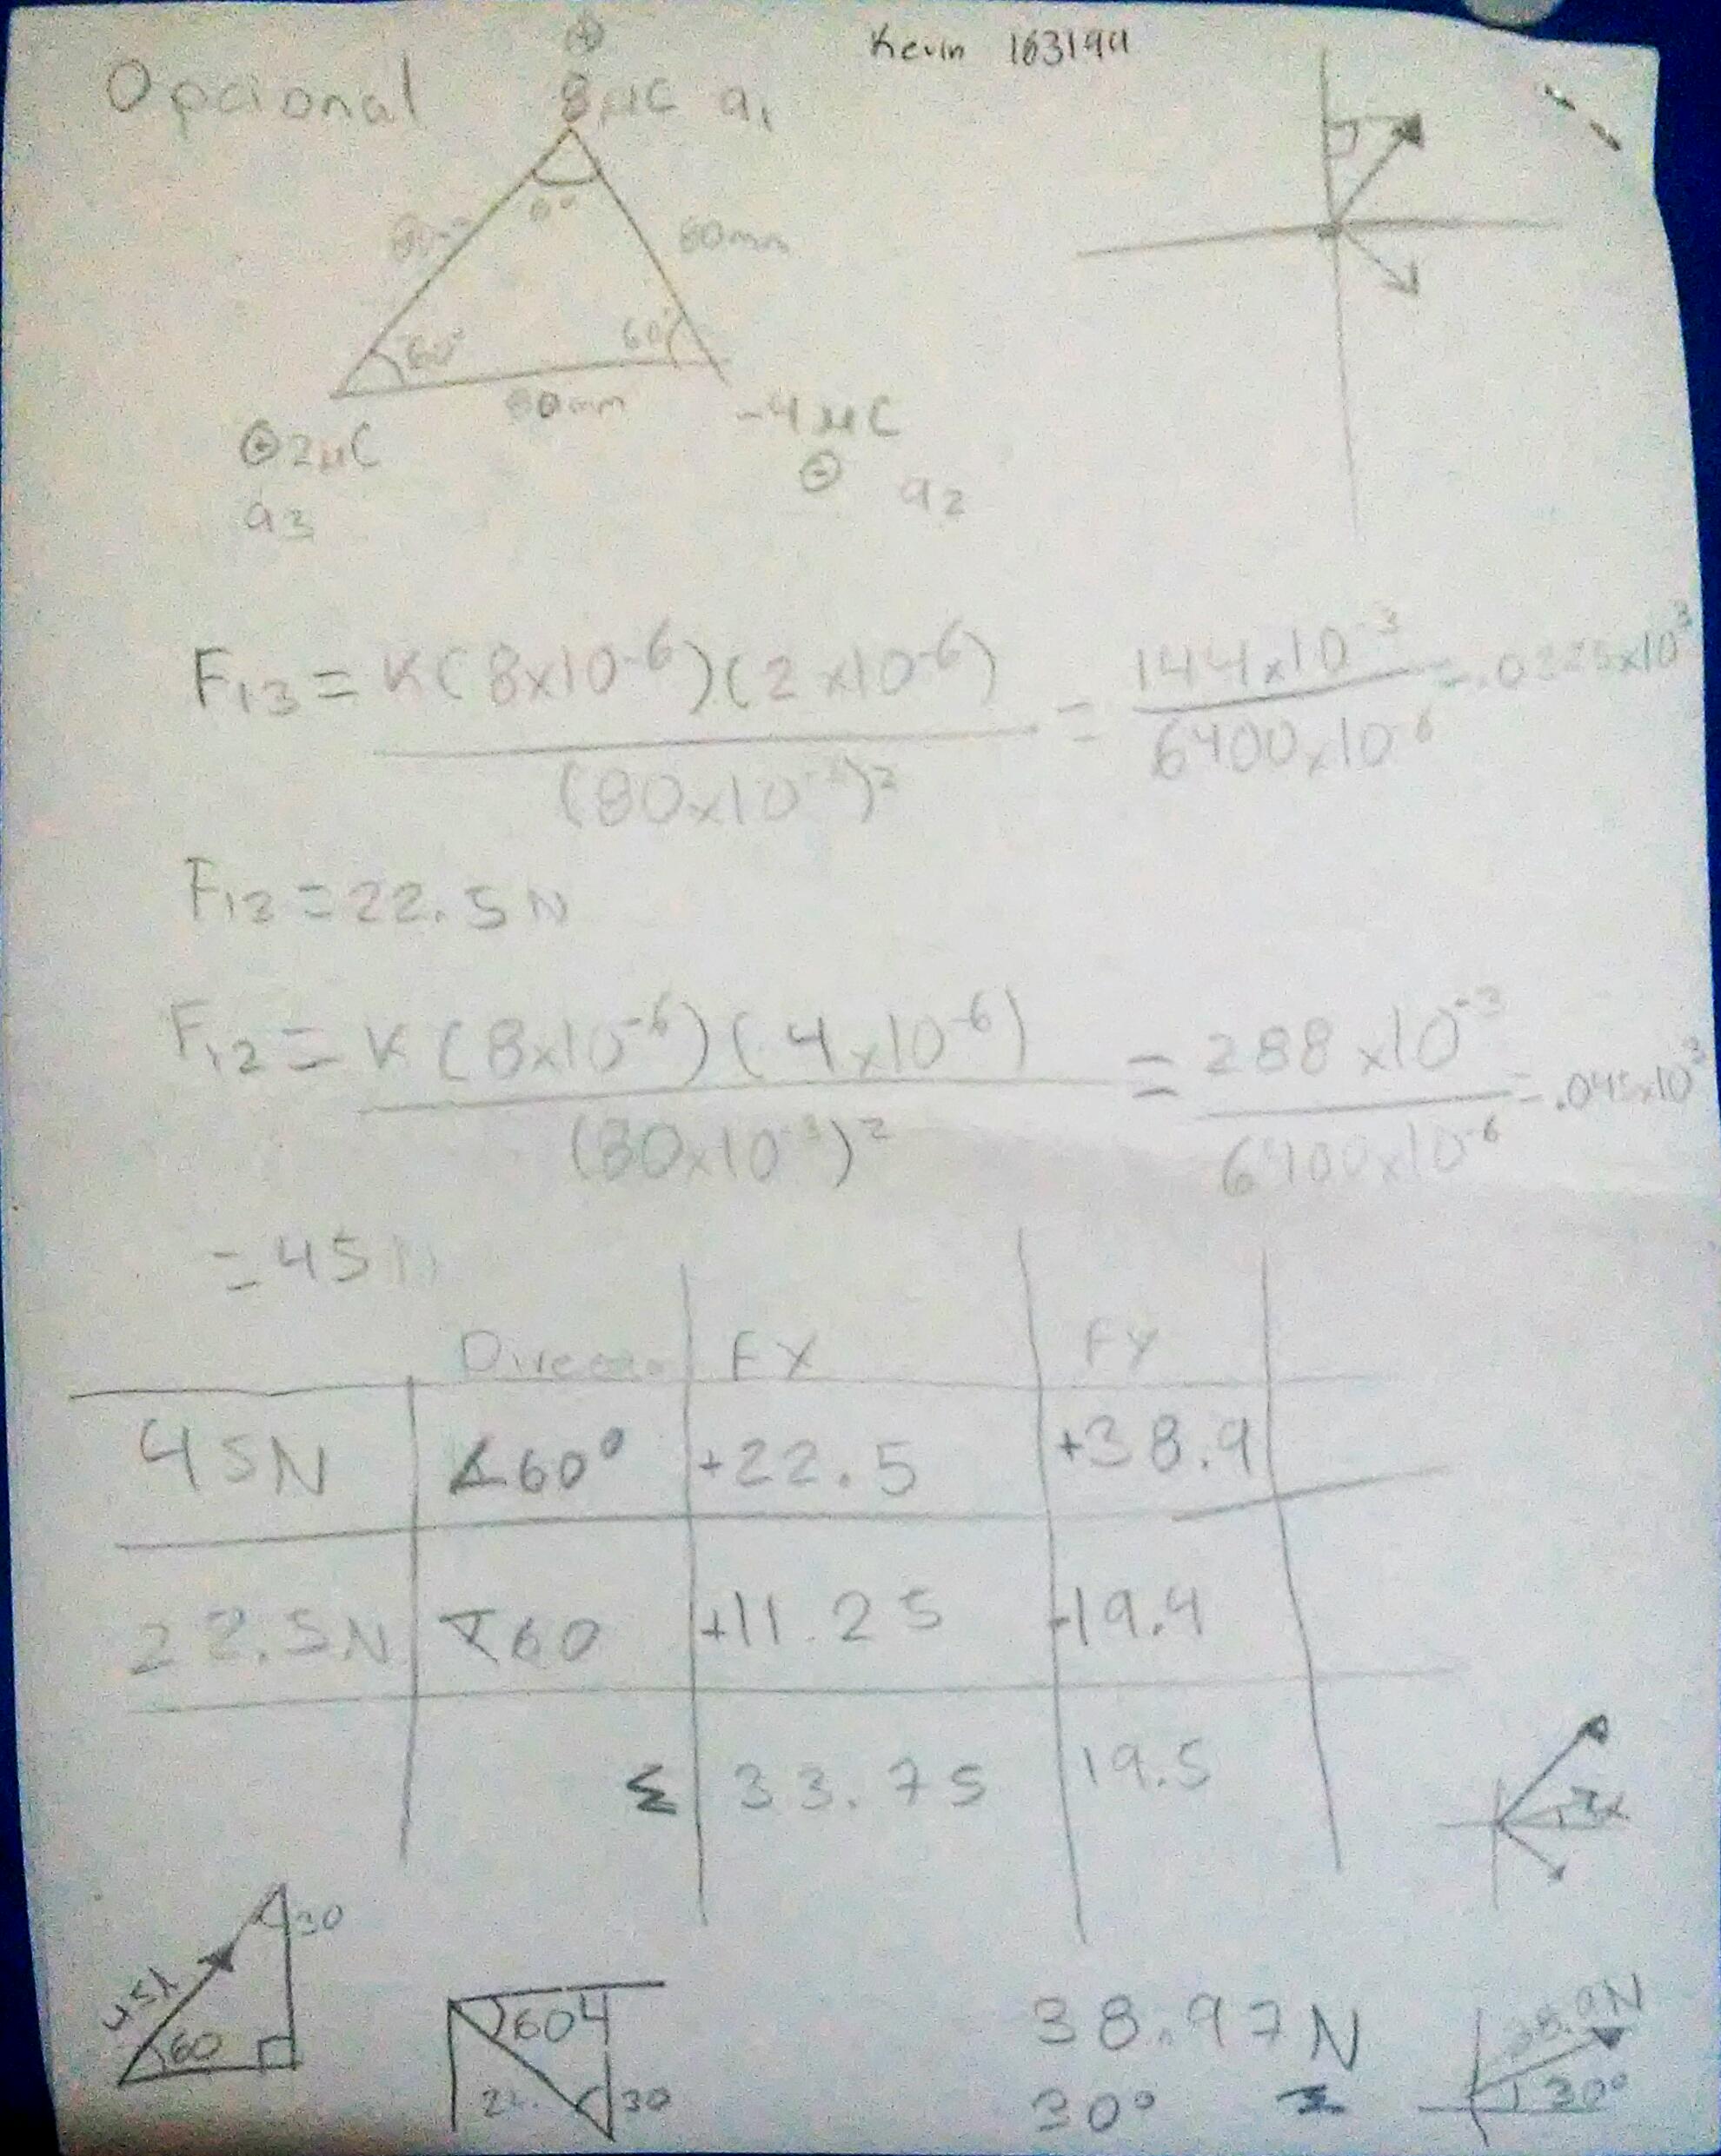 Kevin 163199
Opcional
⊕
8 μC q₁
60°
80mm
60° 60°
80mm
⊕2μC -4 μC
⊖
q₃ q₂
F₁₃ = K(8x10⁻⁶)(2x10⁻⁶) / (80x10⁻³)² = 144x10⁻³ / 6400x10⁻⁶ = .0225x10³
F₁₃ = 22.5N
F₁₂ = K(8x10⁻⁶)(4x10⁻⁶) / (80x10⁻³)² = 288x10⁻³ / 6400x10⁻⁶ = .045x10³
= 45N
FX FY
45N ∡60° +22.5 +38.9
22.5N ∡60 +11.25 -19.4
Σ 33.75 19.5
30
45N
60
60
30
38.97N
30°
38.9N
30°